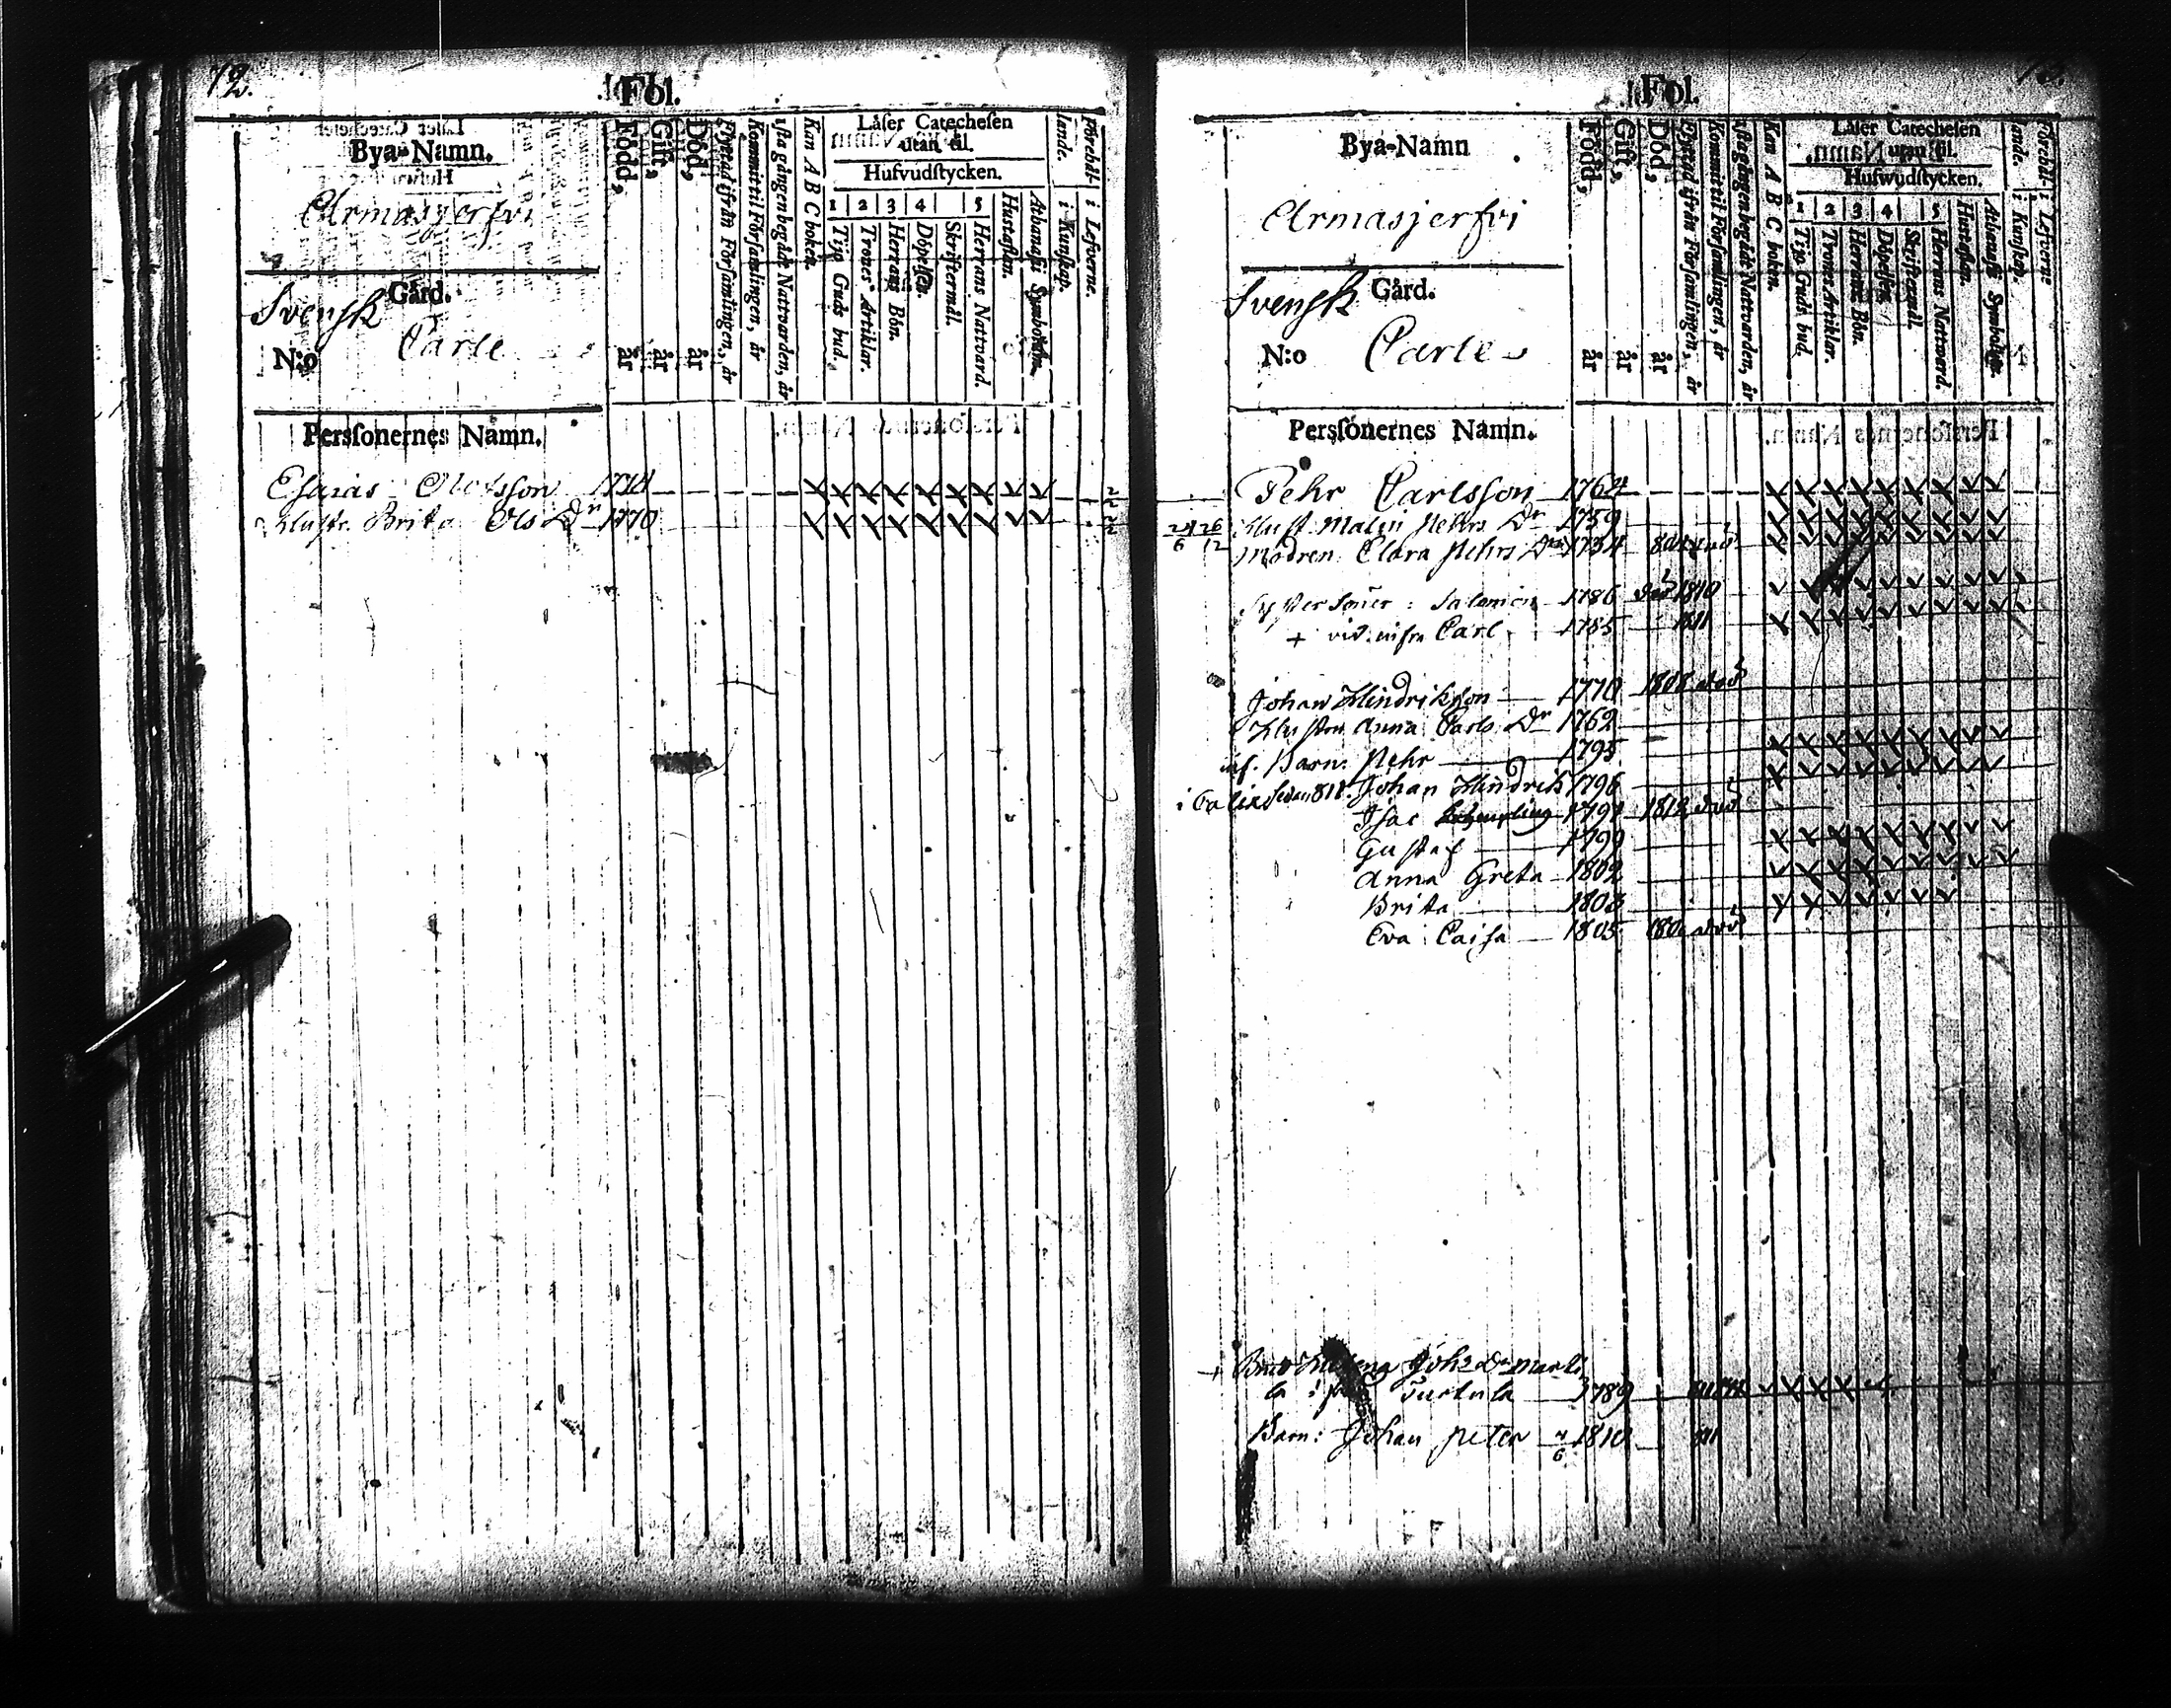 72.
Fol.
Bya-Namn.
Armasjerfvi
Gård.
Svensk
N:o Carle
Född, år
Gift, år
Död, år
Flyttad ifrån Församlingen, år
Kommit til Församlingen, år
1sta gången begådt Nattvarden, år
Kan A B C boken.
Låser Catechesen
utan til.
Hufvudstycken.
1 2 3 4 5
Tijo Guds bud.
Trones Artiklar.
Herrans Bön.
Döpelsen.
Skriftermål.
Herrans Nattvard.
Hustaflan.
Athanasii Symbolum.
Förehållande.
i Kunskap.
i Lefverne.
Persſonernes Namn.
Esaias Olofsson 1744
Hustr. Brita Ols Dr 1770
Fol.
Bya-Namn
Armasjerfvi
Gård.
Svensk
N:o Carle
Född, år
Gift, år
Död, år
Flyttad ifrån Församlingen, år
Kommit til Församlingen, år
1sta gången begådt Nattvarden, år
Kan A B C boken.
Låser Catechesen
utan til.
Hufwudstycken.
1 2 3 4 5
Tijo Guds bud.
Trones Artiklar.
Herrans Bön.
Döpelsen.
Skriftermål.
Herrans Nattvard.
Hustaflan.
Athanasii Symbolum.
i Kunskap.
i Lefverne
Persſonernes Namn.
Pehr Carlsson 1764
Hust. Malin Pehrs Dr 1759
Modren Clara Pehrs Dr 1734
Systersöner: Salomon 1786 död 1810
+ vid. infra Carl 1785 1811
Johan Hindriksson 1770 1808 död
Hustru Anna Carls Dr 1762
Barn: Pehr 1795
i Calix sedan 1818. Johan Hindrich 1796
Isac 1797 1812 död
Gustaf 1799
Anna Greta 1802
Brita 1803
Eva Caisa 1805 död
Johs Dr
Turtula 1789
Barn: Johan Peter 1810 811